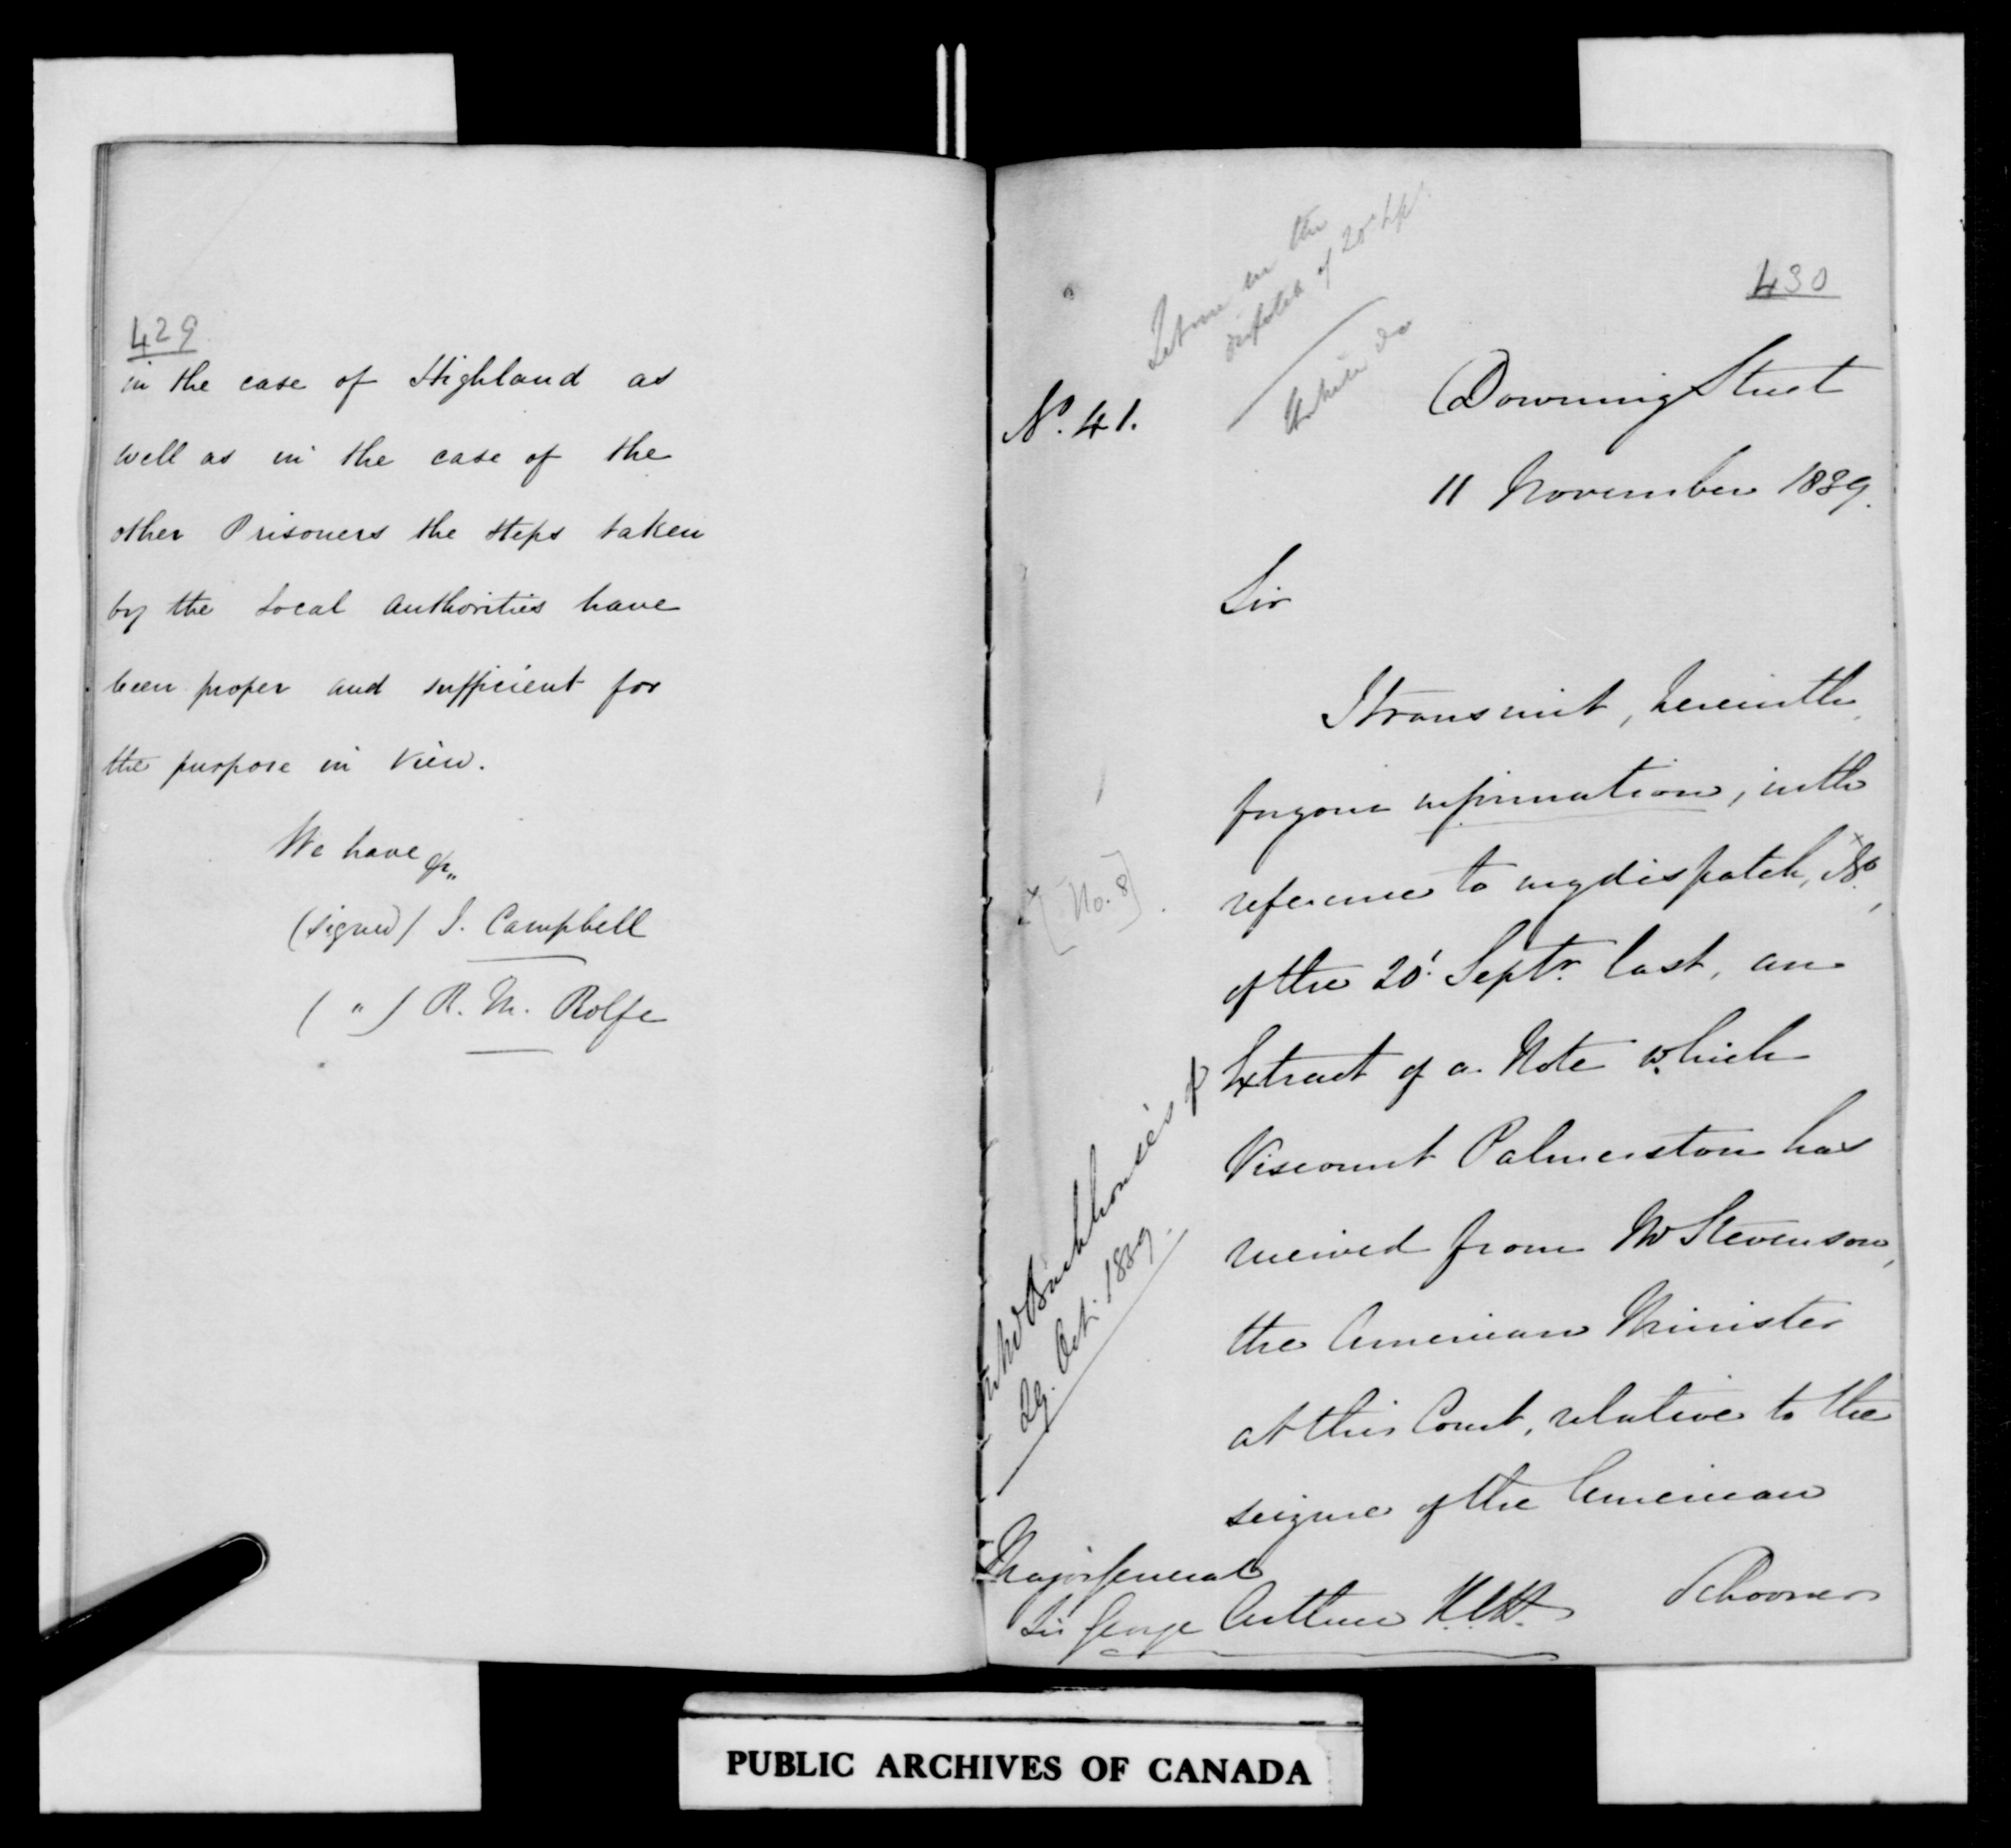 429
in the case of Highland as
well as in the case of the
other Prisoners the steps taken
by the Local Authorities have
been proper and sufficient for
the purpose in view.
We have &c
(signed) J. Campbell
( " ) R. M. Rolfe
430
in the
dispatch of 20 Sept
No. 41.
Downing Street
11 November 1839.
Sir
I transmit, herewith,
for your information, with
reference to my dispatch, No.
[No. 8]
of the 20t. Septr. last, an
Extract of a Note which
Viscount Palmerston has
received from Mr Stevenson,
the American Minister
at this Court, relative to the
seizure of the American
Mr Backhouse's of
29. Oct. 1839.
Schooner
Major General
Sir George Arthur K.C.H.
PUBLIC ARCHIVES OF CANADA